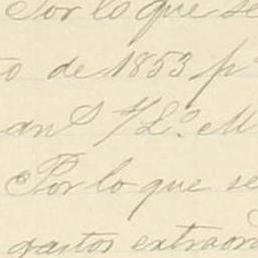 Por lo que se
o de 1853 p.
an
Por lo que se
gastos extraor